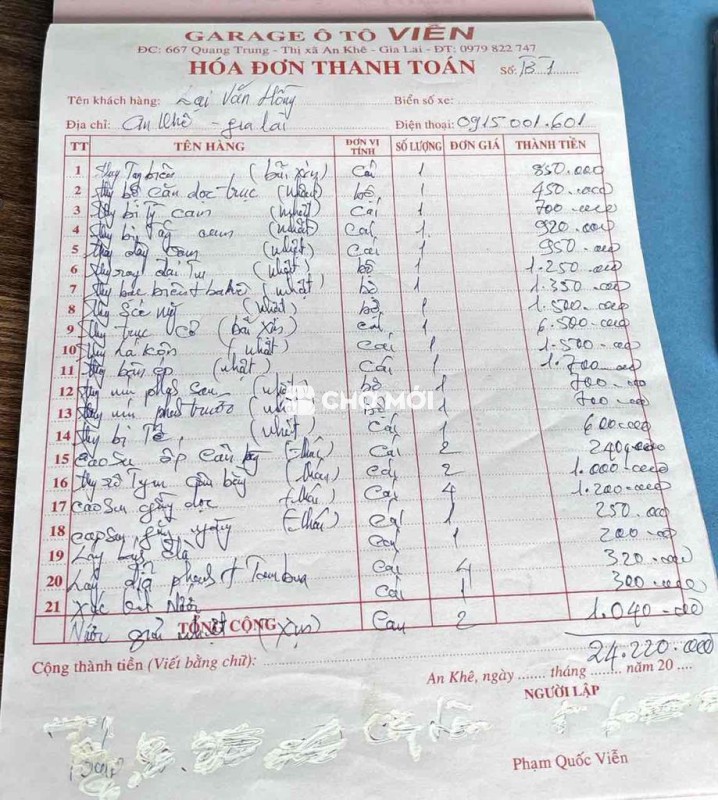 GARAGE Ô TÔ VIỄN
ĐC: 667 Quang Trung - Thị xã An Khê - Gia Lai - ĐT: 0979 822 747
HÓA ĐƠN THANH TOÁN Số: B 1
Tên khách hàng: Lại Văn Hồng Biển số xe:
Địa chỉ: An Khê - gia lai Điện thoại: 0915 001.601
TT TÊN HÀNG ĐƠN VỊ TÍNH SỐ LƯỢNG ĐƠN GIÁ THÀNH TIỀN
1 (bãi xịn) Cái 1 850.000
2 Thay bộ căn dọc trục (nhật) bộ 1 450.000
3 Thay bi Tỳ cam (nhật) Cái 1 700.000
4 Thay bi Tăng cam (nhật) Cái 1 920.000
5 Thay dây cam (nhật) Cái 1 950.000
6 Thay (nhật) bộ 1 1.250.000
7 Thay bạc biên + (nhật) bộ 1 1.350.000
8 Thay (nhật) bộ 1 1.500.000
9 Thay trục cơ (bãi xịn) Cái 1 6.500.000
10 Thay La kôn (nhật) Cái 1 1.500.000
11 Thay bàn ép (nhật) Cái 1 1.700.000
12 Thay phốt sau (nhật) bộ 1 700.000
13 Thay trước (nhật) bộ 1 700.000
14 Thay bi Tê (nhật) Cái 1 600.000
15 Cao su (Thái) Cái 2 240.000
16 Thay rô Tyn cân bằng (Thái) Cái 2 1.000.000
17 Cao su giằng dọc (Thái) Cái 4 1.200.000
18 cao su giằng ngang (Thái) Cái 1 250.000
19 Láng 1 200.000
20 Láng đĩa phanh + Tambua Cái 4 320.000
21 Xúc két Nước Cái 1 300.000
TỔNG CỘNG
Nước giải nhiệt (xịn) Can 2 1.040.000
24.220.000
Cộng thành tiền (Viết bằng chữ):
An Khê, ngày ....... tháng ......... năm 20 ....
NGƯỜI LẬP
Phạm Quốc Viễn
CHỢ MỚI